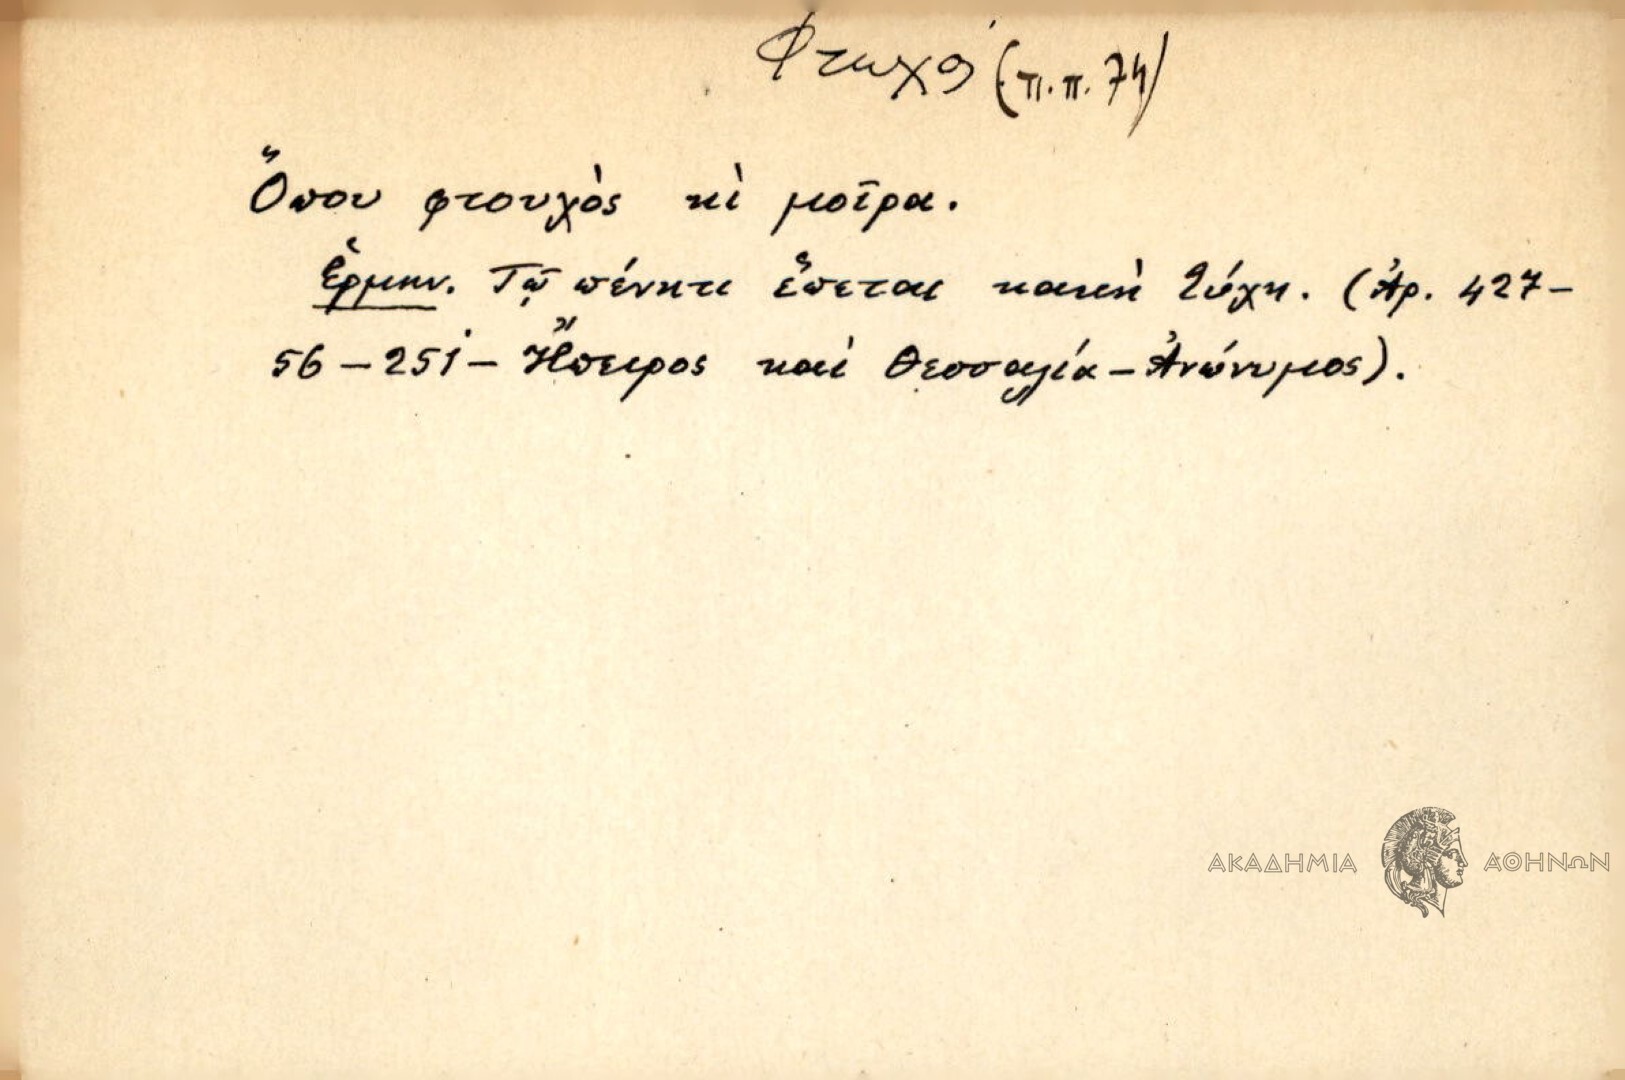 Φτωχό (π.π. 74)
Ὅπου φτουχὸς κὶ μοῖρα.
Ἑρμην. Τῷ πένητι ἕπεται κακὴ τύχη. (Ἀρ. 427-
56-251- Ἤπειρος καὶ Θεσσαλία-Ἀνώνυμος).
ΑΚΑΔΗΜΙΑ ΑΘΗΝΩΝ